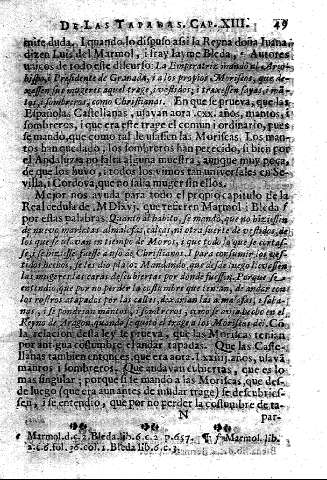 DE LAS TAPADAS. CAP. XIII. 49
mite duda, I quando lo dispuso assi la Reyna doña Juana
dizen Luis del Marmol, i fray Jayme Bleda, Autores
unicos de todo este discurso. La Emperatriz mandò al Arço-
bispo, i Presidente de Granada, i a los propios Moriscos, que de-
xassen sus mugeres aquel trage, i vestidos; i traxessen sayas, i mã-
tos, i sombreros, como Christianas. En que se prueva, que las
Españolas Castellanas, usavan aora .cxx. años, mantos, i
sombreros, i que era este trage el comun i ordinario, pues
se manda, que como tal le usassen las Moriscas. Los man-
tos han quedado; los sombreros han perecido, si bien por
el Andaluzia no falta alguna muestra, aunque muy poca,
de que los huvo, i todos los vimos tan universales en Se-
villa, i Cordova, que no salia muger sin ellos.
Mejor nos ayuda para todo el propio capitulo de la
Real cedula de .MDlxvj. que refieren Marmol, i Bleda f
por estas palabras. Quanto al habito, se mandò, que no hiziessen
de nuevo marlotas, almalafas, calças, ni otra suerte de vestidos, de
los que se usavan en tiempo de Moros, i que todo lo que se cortas-
se, i hiziesse, fuesse a uso de Christianos. I para consumir los ves-
tidos hechos, se les dio plaço: Mandando, que desde luego llevassen
las mugeres las caras descubiertas por donde fuessen. Porque se
entendio, que por no perder la costumbre que tenian, de andar con
los rostros atapados por las calles, dexarian las almalafas, i saba-
nas, i se pondrian mantos, i sombreros, como se avia hecho en el
Reyno de Aragon, quando se quitò el trage a los Moriscos del. Cõ
la relacion desta lei se prueva, que las Moriscas tenian
por antigua costumbre el andar tapadas. Que las Caste-
llanas tambien entonces, que era aora .lxxiij. años, usavã
mantos i sombreros. Que andavan cubiertas, que es lo
mas singular; porque si se manda a las Moriscas, que des-
de luego (que era aun antes de mudar trage) se descubries-
sen, i se entendio, que por no perder la costumbre de ta-
N par-
e Marmol. d. c. 2. Bleda. lib. 6. c. 2. p. 657. ¶ f Marmol. lib.
2. c. 6. fol. 36. col. 1. Bleda lib. 6. c. 3.